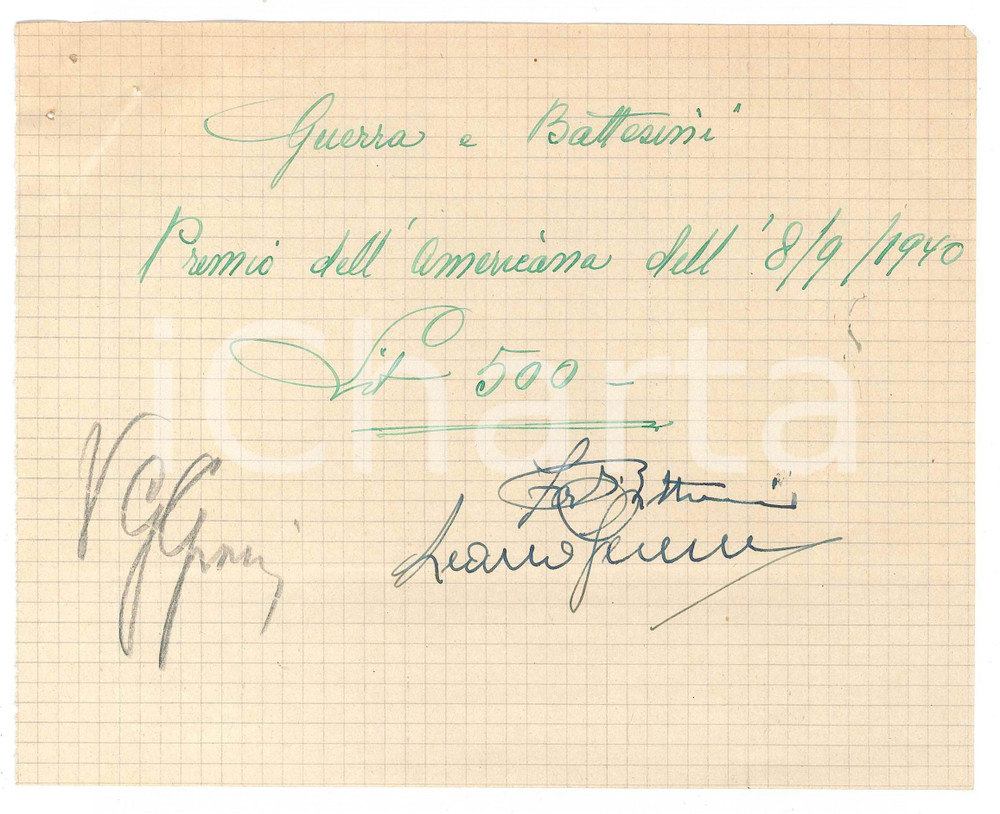 Guerra e Battesini
Premio dell'Americana dell'8/9/1940
Lit 500 -
iCharta
Learco Guerra